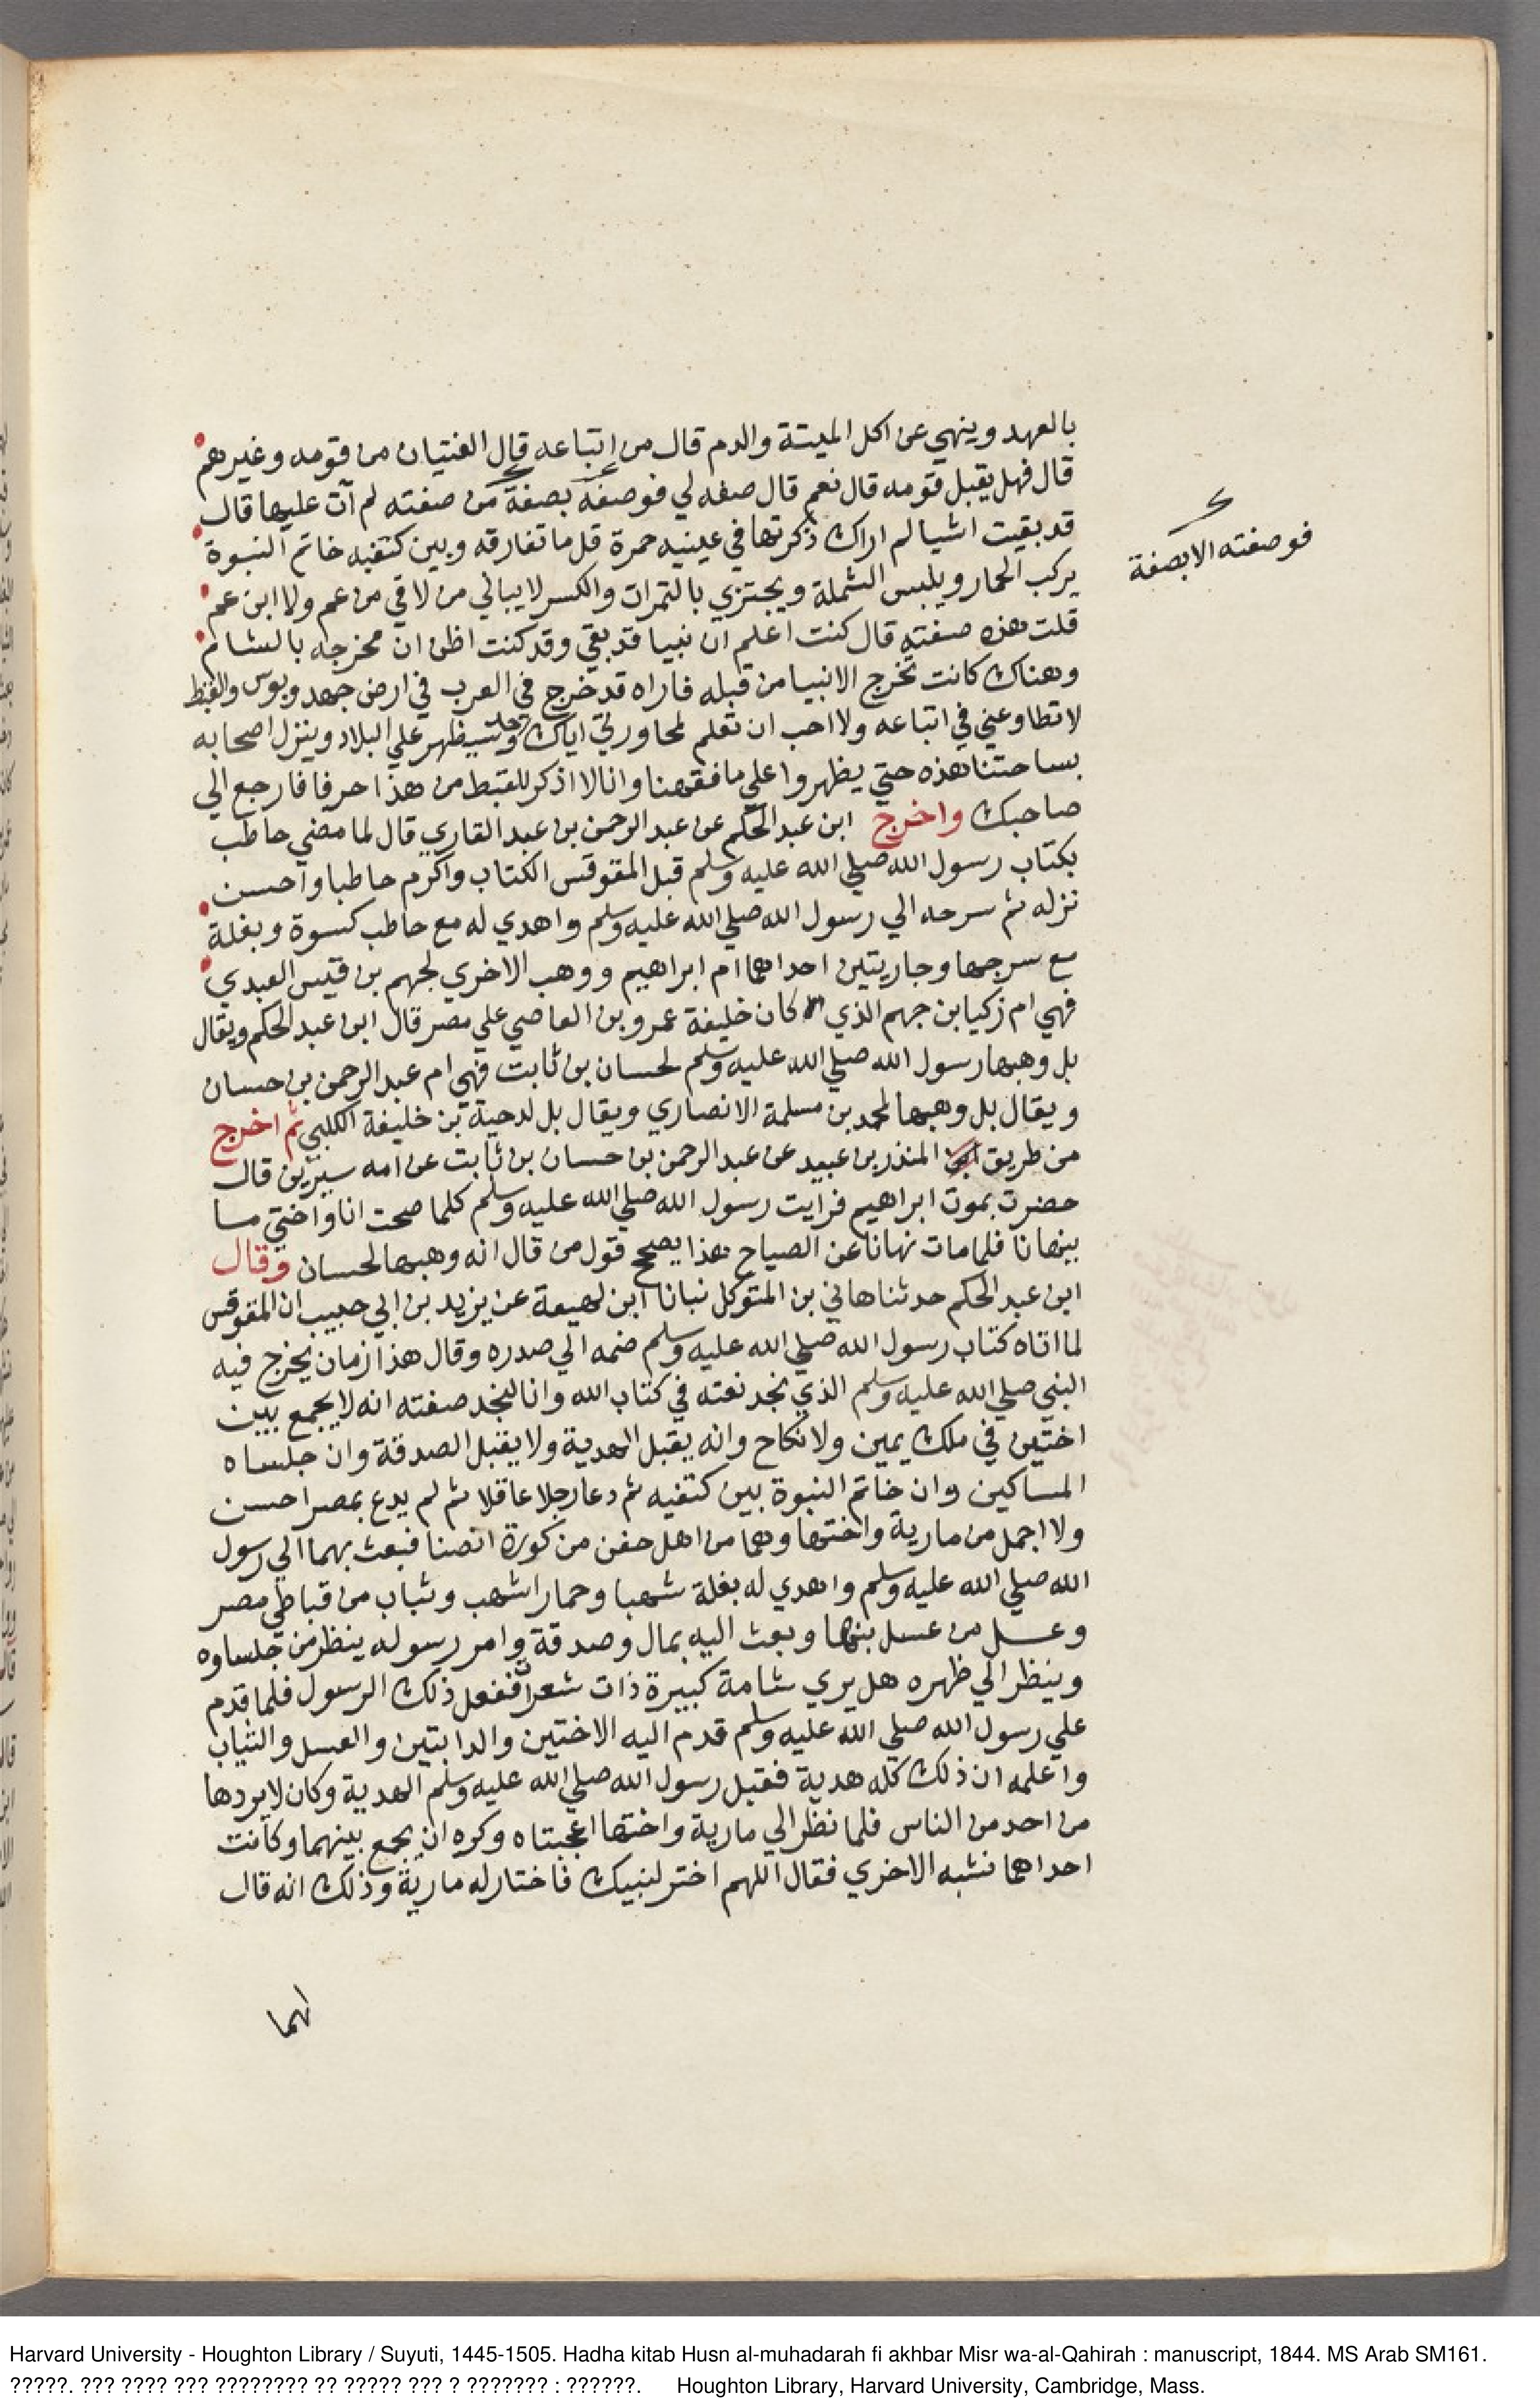 بالعهد وينهي عن اكل الميتة والدم قال من اتباعه قال الفتيان من قومه وغيرهم
قال فهل يقبل قومه قال نعم قال صفه لي فوصفه بصفة من صفته لم آت عليها قال
فوصفته الابصفة
قد بقيت اشيا لم اراك ذكرتها في عينيه حمرة قل ما تفارقه وبين كتفيه خاتم النبوة
يركب الحمار ويلبس الشملة ويجتزي بالتمرات والكسر لا يبالي من لاقي من عم ولا ابن عم
قلت هذه صفته قال كنت اعلم ان نبيا قد بقي وقد كنت اظن ان مخرجه بالشام
وهناك كانت تخرج الانبيا من قبله فاراه قد خرج في العرب في ارض جهد وبوس والقبط
لا تطاوعني في اتباعه ولا احب ان تعلم لمحاورتي اياك وسيظهر علي البلاد وينزل اصحابه
بساحتنا هذه حتي يظهروا علي ما فههنا وانا لا اذكر للقبط من هذا حرفا فارجع الي
صاحبك واخرج ابن عبد الحكم عن عبد الرحمن بن عبد القاري قال لما مضي حاطب
بكتاب رسول الله صلي الله عليه وسلم قبل المقوقس الكتاب واكرم حاطبا واحسن
نزله ثم سرحه الي رسول الله صلي الله عليه وسلم واهدي له مع حاطب كسوة وبغلة
مع سرجها وجاريتين احداهما ام ابراهيم ووهب الاخري لجهم بن قيس العبدي
فهي ام زكيا بن جهم الذي كان خليفة عمرو بن العاصي علي مصر قال ابن عبد الحكم ويقال
بل وهبها رسول الله صلي الله عليه وسلم لحسان بن ثابت فهي ام عبد الرحمن بن حسان
ويقال بل وهبها لمحمد بن مسلمة الانصاري ويقال بل لدحية بن خليفة الكلبي ثم اخرج
من طريق المنذر بن عبيد عن عبد الرحمن بن حسان بن ثابت عن امه سيرين قال
حضرت بموت ابراهيم فرايت رسول الله صلي الله عليه وسلم كلما صحت انا واختي ما
ينهانا فلما مات نهانا عن الصياح هذا يصحح قول من قال انه وهبها لحسان وقال
ابن عبد الحكم حدثنا هاني بن المتوكل نبانا ابن لهيعة عن يزيد بن ابي حبيب ان المقوقس
لما اتاه كتاب رسول الله صلي الله عليه وسلم ضمه الي صدره وقال هذا زمان يخرج فيه
النبي صلي الله عليه وسلم الذي نجد نعته في كتاب الله وانا لنجد صفته انه لا يجمع بين
اختين في ملك يمين ولا نكاح وانه يقبل الهدية ولا يقبل الصدقة وان جلساه
المساكين وان خاتم النبوة بين كتفيه ثم دعا رجلا عاقلا ثم لم يدع بمصر احسن
ولا اجمل من مارية واختها وهما من اهل حفن من كورة انصنا فبعث بهما الي رسول
الله صلي الله عليه وسلم واهدي له بغلة شهبا وحمارا شهب وثياب من قباطي مصر
وعسل من عسل بنها وبعث اليه بمال وصدقة وامر رسوله ينظر من جلساوه
وينظر الي ظهره هل يري شامة كبيرة ذات شعرات ففعل ذلك الرسول فلما قدم
علي رسول الله صلي الله عليه وسلم قدم اليه الاختين والدابتين والعسل والثياب
واعلمه ان ذلك كله هدية فقبل رسول الله صلي الله عليه وسلم الهدية وكان لا يردها
من احد من الناس فلما نظر الي مارية واختها اعجبتاه وكره ان يجمع بينهما وكانت
احداهما تشبه الاخري فقال اللهم اختر لنبيك فاختار له مارية وذلك انه قال
لهما
Harvard University - Houghton Library / Suyuti, 1445-1505. Hadha kitab Husn al-muhadarah fi akhbar Misr wa-al-Qahirah : manuscript, 1844. MS Arab SM161.
?????. ??? ???? ??? ???????? ?? ????? ??? ? ??????? : ??????. Houghton Library, Harvard University, Cambridge, Mass.